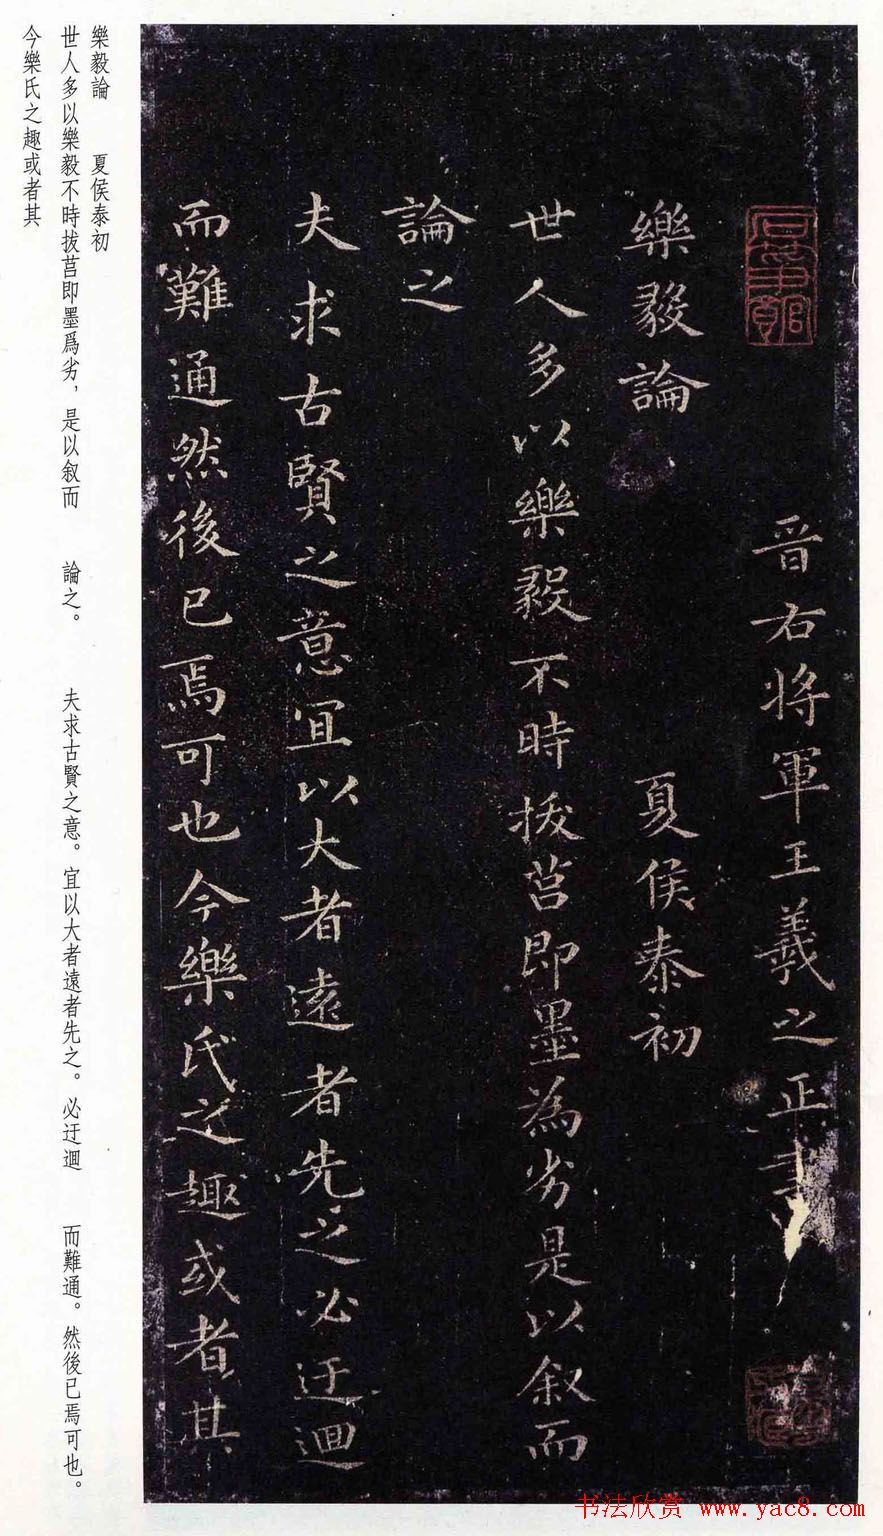 晉右将軍王羲之正書
樂毅論 夏侯泰初
世人多以樂毅不時拔莒即墨為劣是以叙而
論之
夫求古賢之意宜以大者遠者先之必迂迴
而難通然後已焉可也今樂氏之趣或者其
樂毅論 夏侯泰初
世人多以樂毅不時拔莒即墨爲劣，是以叙而 論之。 夫求古賢之意。宜以大者遠者先之。必迂迴 而難通。然後已焉可也。
今樂氏之趣或者其
书法欣赏 www.yac8.com